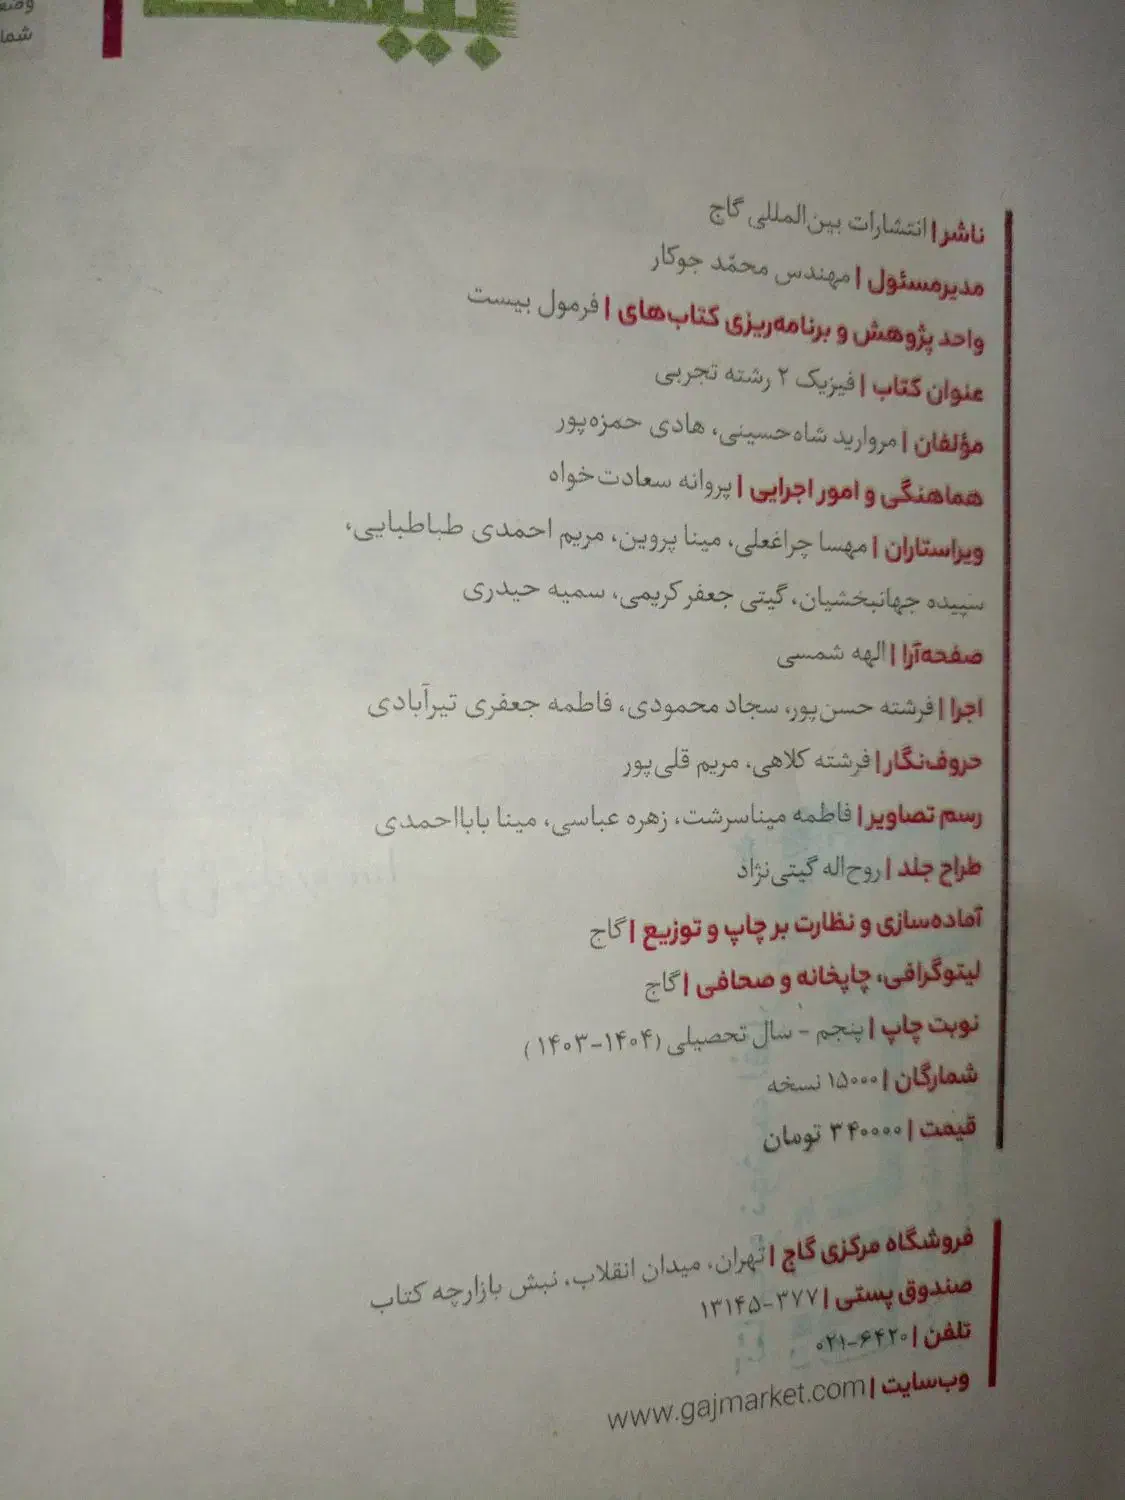 وضع
شما
بیست
ناشر | انتشارات بین‌المللی گاج
مدیرمسئول | مهندس محمّد جوکار
واحد پژوهش و برنامه‌ریزی کتاب‌های | فرمول بیست
عنوان کتاب | فیزیک ۲ رشته تجربی
مؤلفان | مروارید شاه‌حسینی، هادی حمزه‌پور
هماهنگی و امور اجرایی | پروانه سعادت‌خواه
ویراستاران | مهسا چراغعلی، مینا پروین، مریم احمدی طباطبایی،
سپیده جهانبخشیان، گیتی جعفرکریمی، سمیه حیدری
صفحه‌آرا | الهه شمسی
اجرا | فرشته حسن‌پور، سجاد محمودی، فاطمه جعفری تیرآبادی
حروف‌نگار | فرشته کلاهی، مریم قلی‌پور
رسم تصاویر | فاطمه میناسرشت، زهره عباسی، مینا بابااحمدی
طراح جلد | روح‌اله گیتی‌نژاد
آماده‌سازی و نظارت بر چاپ و توزیع | گاج
لیتوگرافی، چاپخانه و صحافی | گاج
نوبت چاپ | پنجم - سال تحصیلی (۱۴۰۴-۱۴۰۳)
شمارگان | ۱۵۰۰۰ نسخه
قیمت | ۳۴۰۰۰۰ تومان
فروشگاه مرکزی گاج | تهران، میدان انقلاب، نبش بازارچه کتاب
صندوق پستی | ۳۷۷-۱۳۱۴۵
تلفن | ۶۴۲۰-۰۲۱
وب‌سایت | www.gajmarket.com